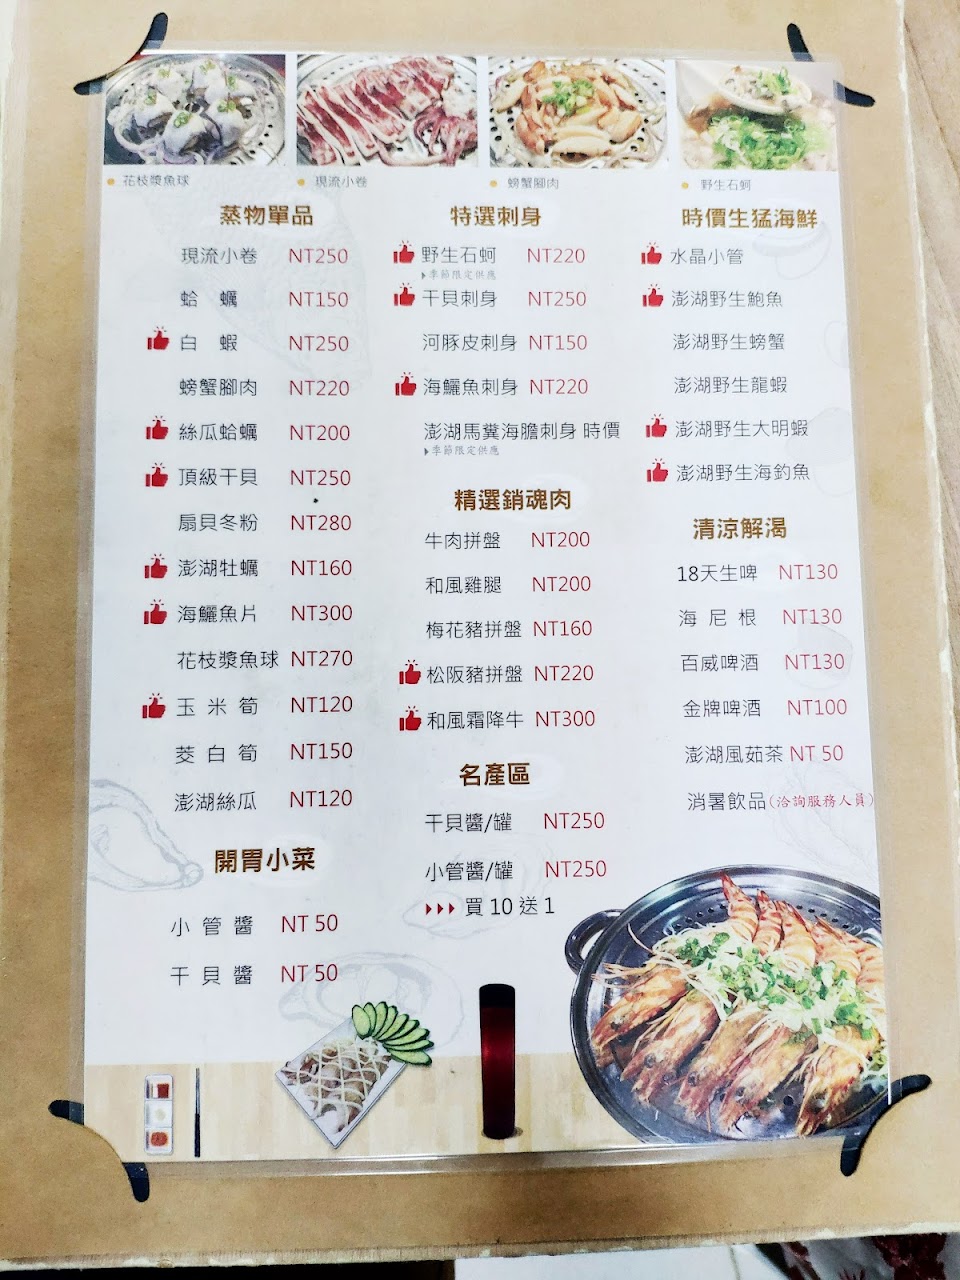 花枝漿魚球
現流小卷
螃蟹腳肉
野生石蚵
蒸物單品
現流小卷 NT250
蛤 蠣 NT150
白 蝦 NT250
螃蟹腳肉 NT220
絲瓜蛤蠣 NT200
頂級干貝 NT250
扇貝冬粉 NT280
澎湖牡蠣 NT160
海鱺魚片 NT300
花枝漿魚球 NT270
玉 米 筍 NT120
茭 白 筍 NT150
澎湖絲瓜 NT120
開胃小菜
小 管 醬 NT 50
干 貝 醬 NT 50
特選刺身
野生石蚵 NT220
季節限定供應
干貝刺身 NT250
河豚皮刺身 NT150
海鱺魚刺身 NT220
澎湖馬糞海膽刺身 時價
季節限定供應
精選銷魂肉
牛肉拼盤 NT200
和風雞腿 NT200
梅花豬拼盤 NT160
松阪豬拼盤 NT220
和風霜降牛 NT300
名產區
干貝醬/罐 NT250
小管醬/罐 NT250
買 10 送 1
時價生猛海鮮
水晶小管
澎湖野生鮑魚
澎湖野生螃蟹
澎湖野生龍蝦
澎湖野生大明蝦
澎湖野生海釣魚
清涼解渴
18天生啤 NT130
海 尼 根 NT130
百威啤酒 NT130
金牌啤酒 NT100
澎湖風茹茶 NT 50
消暑飲品(洽詢服務人員)